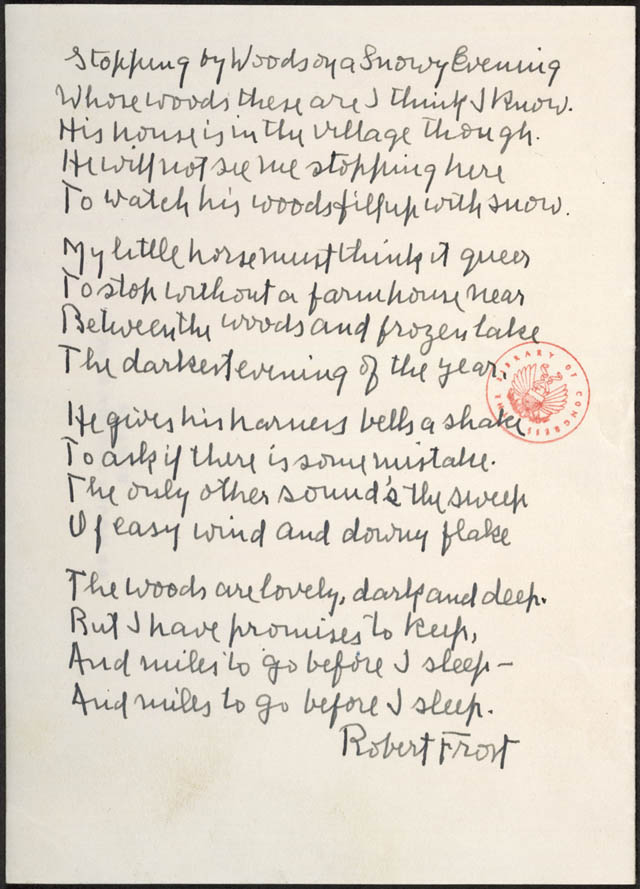 Stopping by Woods on a Snowy Evening
Whose woods these are I think I know.
His house is in the village though.
He will not see me stopping here
To watch his woods fill up with snow.
My little horse must think it queer
To stop without a farmhouse near
Between the woods and frozen lake
The darkest evening of the year.
He gives his harness bells a shake
To ask if there is some mistake.
The only other sound's the sweep
Of easy wind and downy flake
The woods are lovely, dark and deep.
But I have promises to keep,
And miles to go before I sleep –
And miles to go before I sleep.
Robert Frost
THE LIBRARY OF CONGRESS